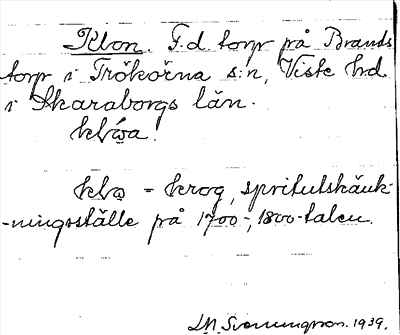 Klon. F.d. torp på Brands
torp i Trökörna s:n, Viste hd
i Skaraborgs län.
klóa.
klo = krog, spritutskänk-
-ningsställe på 1700-, 1800-talen.
Svenungson. 1939.